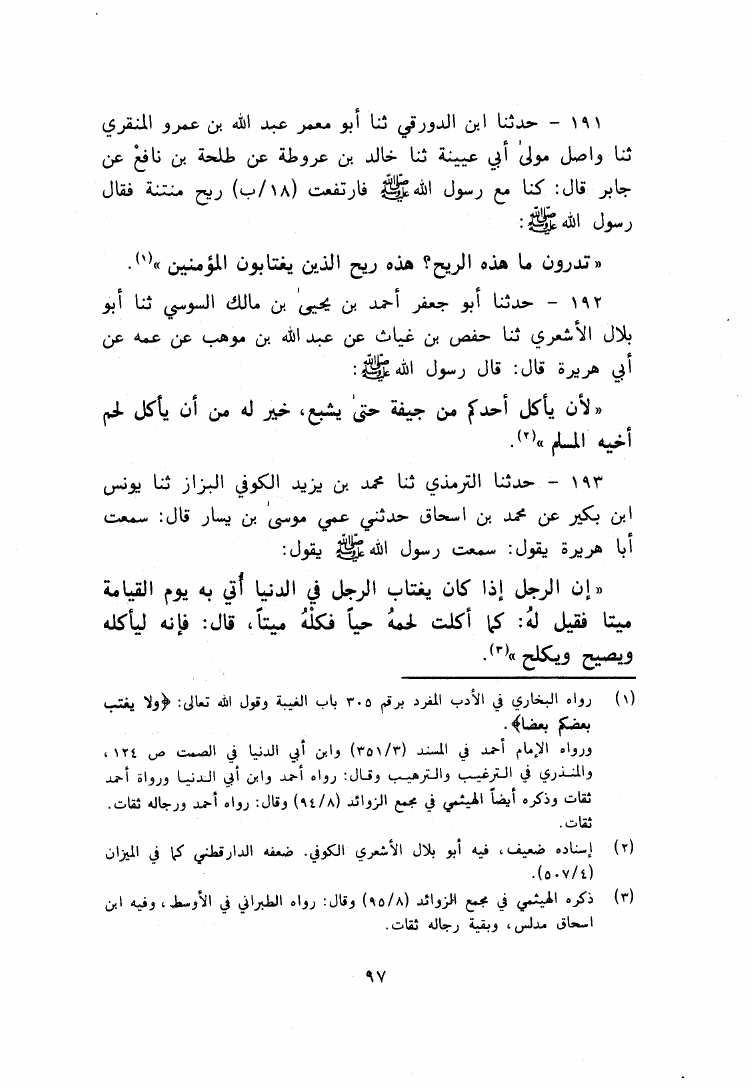 ١٩١ - حدثنا ابن الدورقي ثنا أبو معمر عبد الله بن عمرو المنقري
ثنا واصل مولىٰ أبي عيينة ثنا خالد بن عروطة عن طلحة بن نافعْ عن
جابر قال: كنا مع رسول الله ﷺ فارتفعت (١٨/ب) ريح منتنة فقال
رسول الله ﷺ:
« تدرون ما هذه الريح؟ هذه ريح الذين يغتابون المؤمنين »(١).
١٩٢ - حدثنا أبو جعفر أحمد بن يحيىٰ بن مالك السوسي ثنا أبو
بلال الأشعري ثنا حفص بن غياث عن عبد الله بن موهب عن عمه عن
أبي هريرة قال: قال رسول الله ﷺ:
« لأن يأكل أحدكم من جيفة حتىٰ يشبع، خير له من أن يأكل لحم
أخيه المسلم »(٢).
١٩٣ - حدثنا الترمذي ثنا محمد بن يزيد الكوفي البزاز ثنا يونس
ابن بكير عن محمد بن اسحاق حدثني عمي موسىٰ بن يسار قال: سمعت
أبا هريرة يقول: سمعت رسول الله ﷺ يقول:
« إن الرجل إذا كان يغتاب الرجل في الدنيا أُتي به يوم القيامة
ميتا فقيل لهُ: كما أكلت لحمهُ حياً فكلْهُ ميتاً، قال: فإنه ليأكله
ويصيح ويكلح »(٣).
(١) رواه البخاري في الأدب المفرد برقم ٣٠٥ باب الغيبة وقول الله تعالى: ﴿ولا يغتب
بعضكم بعضا﴾.
ورواه الإمام أحمد في المسند (٣٥١/٣) وابن أبي الدنيا في الصمت ص ١٢٤،
والمنذري في الترغيب والترهيب وقال: رواه أحمد وابن أبي الدنيا ورواة أحمد
ثقات وذكره أيضاً الهيثمي في مجمع الزوائد (٩٤/٨) وقال: رواه أحمد ورجاله ثقات.
ثقات.
(٢) إسناده ضعيف، فيه أبو بلال الأشعري الكوفي. ضعفه الدارقطني كما في الميزان
(٥٠٧/٤).
(٣) ذكره الهيثمي في مجمع الزوائد (٩٥/٨) وقال: رواه الطبراني في الأوسط، وفيه ابن
اسحاق مدلس، وبقية رجاله ثقات.
٩٧